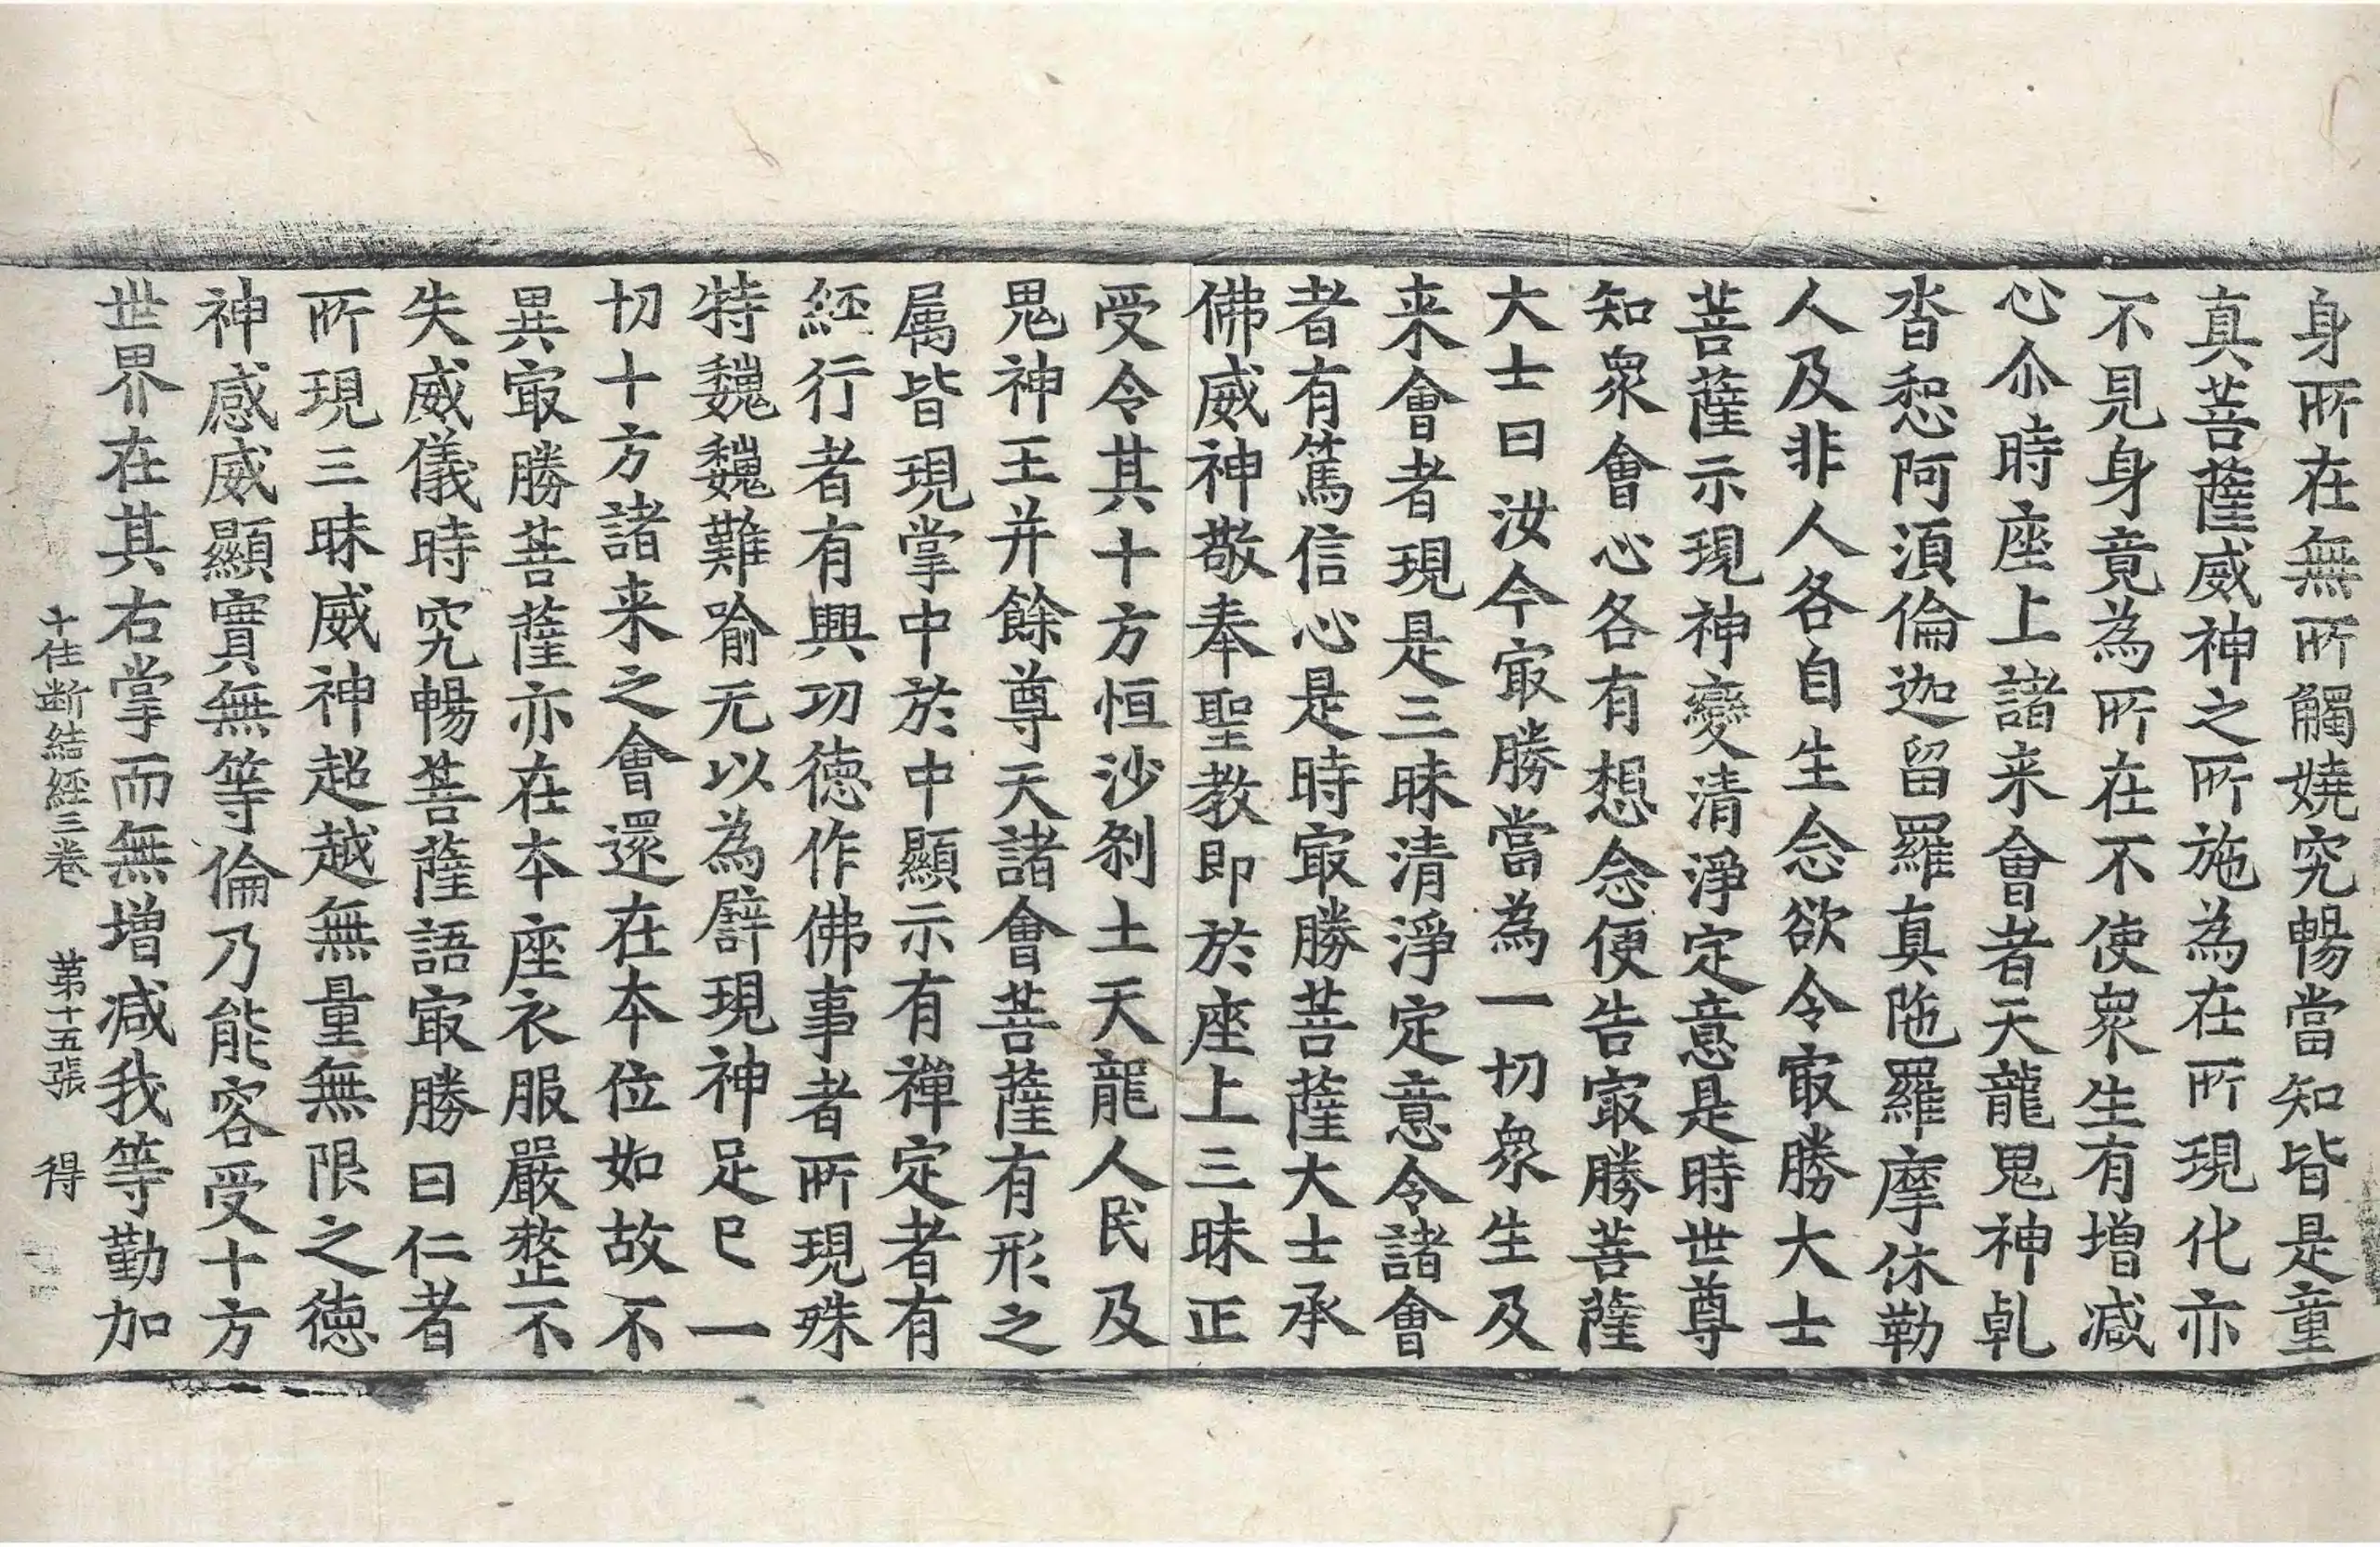 身所在無所觸嬈究暢當知皆是童
真菩薩威神之所施為在所現化亦
不見身竟為所在不使衆生有增减
心尒時座上諸来會者天龍鬼神乹
沓惒阿須倫迦留羅真陁羅摩休勒
人及非人各自生念欲令㝡勝大士
菩薩示現神變清淨定意是時世尊
知衆會心各有想念便告㝡勝菩薩
大士曰汝今㝡勝當為一切衆生及
来會者現是三昧清淨定意令諸會
者有篤信心是時㝡勝菩薩大士承
佛威神敬奉聖教即於座上三昧正
受令其十方恒沙剎土天龍人民及
鬼神王并餘尊天諸會菩薩有形之
属皆現掌中於中顯示有禪定者有
經行者有興功徳作佛事者所現殊
特巍巍難喻无以為譬現神足已一
切十方諸来之會還在本位如故不
異㝡勝菩薩亦在本座衣服嚴整不
失威儀時究暢菩薩語㝡勝曰仁者
所現三昧威神超越無量無限之徳
神感威顯實無等倫乃能容受十方
世界在其右掌而無增减我等勤加
十住断結經三卷 苐十五張 得